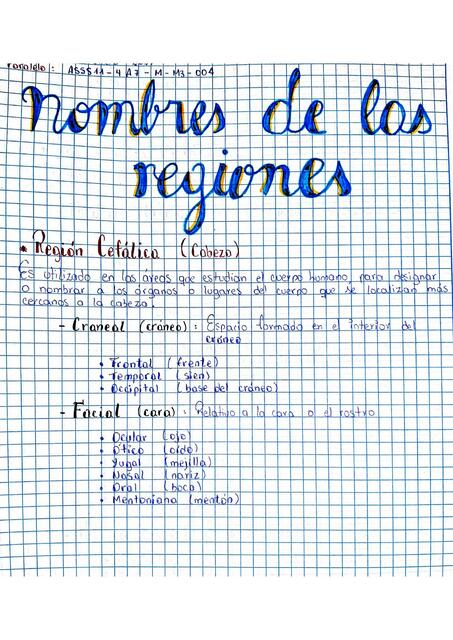 ASSS11-4A7-M-M3-004
Nombres de las
regiones
• Región Cefálica (Cabeza)
Es utilizado en las áreas que estudian el cuerpo humano para designar
o nombrar a los órganos o lugares del cuerpo que se localizan más
cercanos a la cabeza.
- Craneal (cráneo): Espacio formado en el interior del
cráneo
• Frontal (frente)
• Temporal (sien)
• Occipital (base del cráneo)
- Facial (cara): Relativo a la cara o el rostro
• Ocular (ojo)
• Ótico (oído)
• Yugal (mejilla)
• Nasal (nariz)
• Oral (boca)
• Mentoniana (mentón)